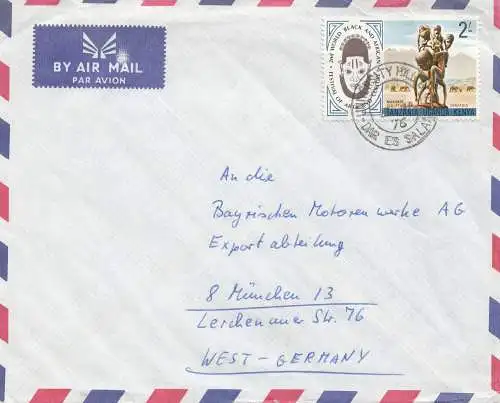 BY AIR MAIL
PAR AVION
2nd WORLD BLACK AND AFRICAN
FESTIVAL OF
2/-
MAKONDE
TANZANIA
TANZANIA UGANDA KENYA
76
DAR ES SALAAM
An die
Bayrischen Motoren werke AG
Export abteilung
8 München 13
Lerchenauer Str. 76
WEST-GERMANY